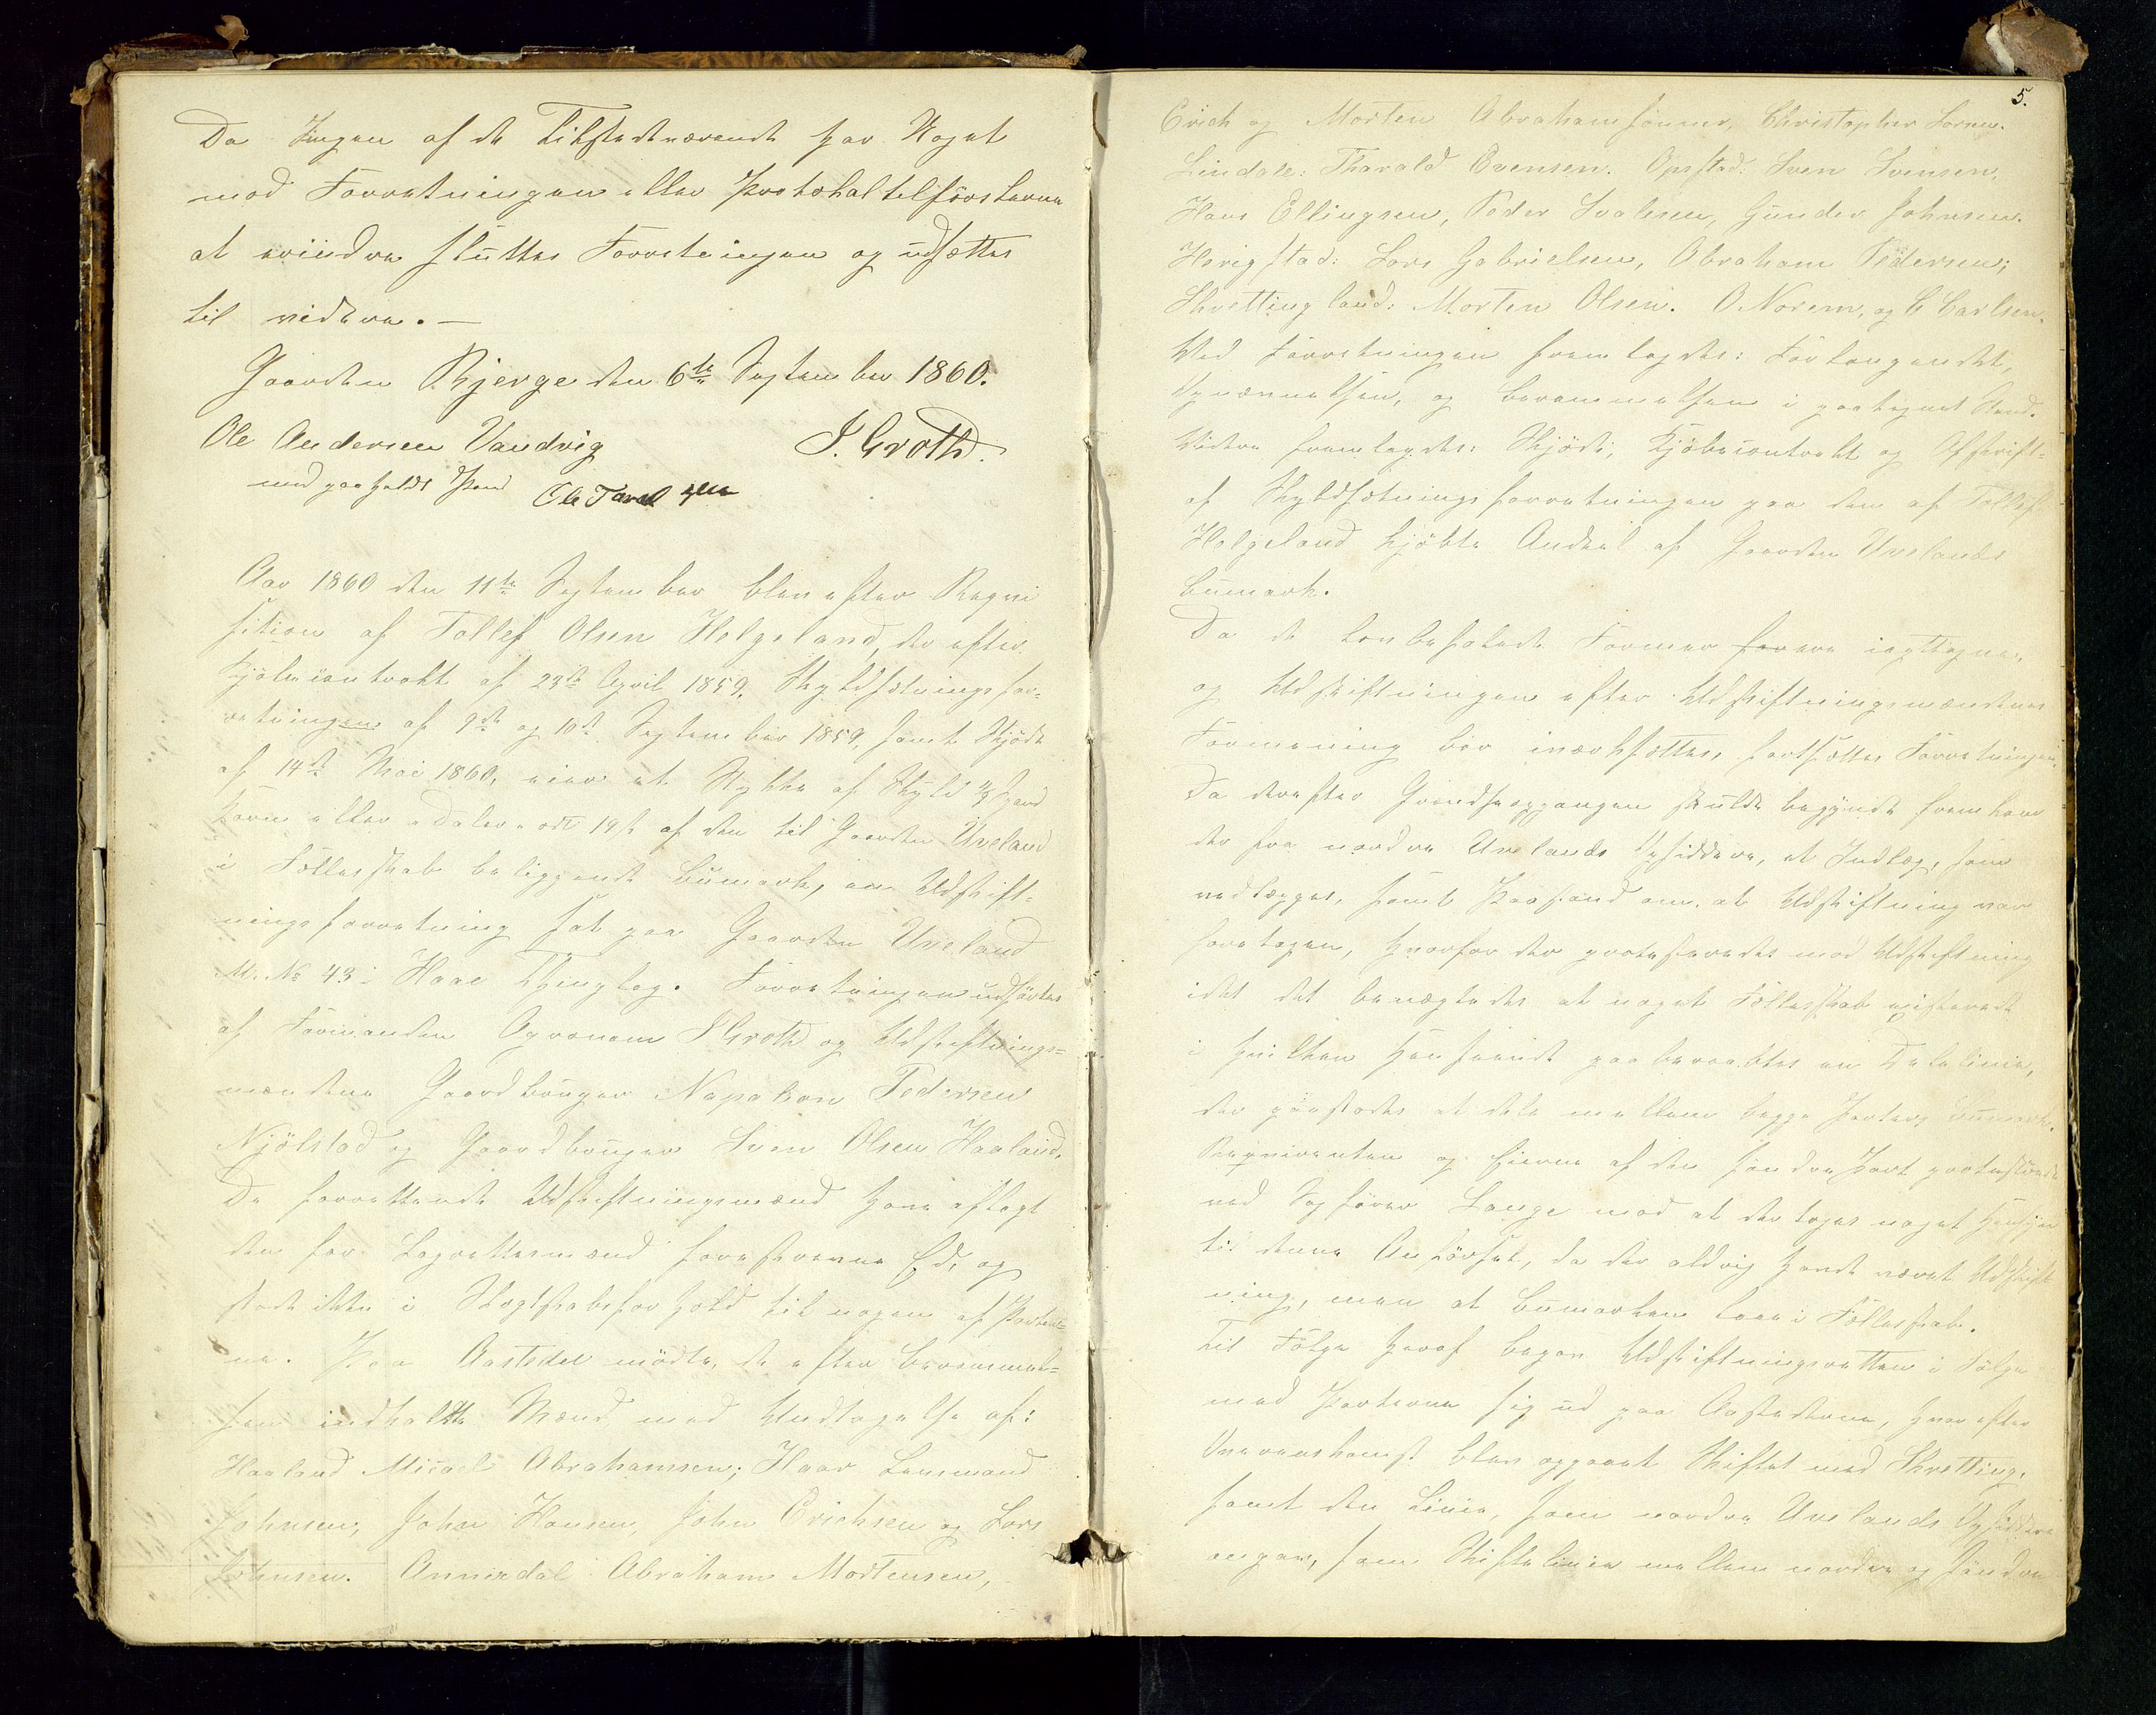 Da Ingen af de Tilstedeværende har Noget
mod Forretningen eller Protokoltilførslerne
at erindre sluttes Forretningen og udsættes
til videre. —
Gaarden Bjerge den 6te September 1860.
Ole Andersen Vandvig J. Groth.
med paaholdt Pen Ole Taral
Aar 1860 den 11te September blev efter Reqvi
sition af Tollef Olsen Helgeland, der efter
Kjöbecontrakt af 23de April 1859, Skyldsætningsfor-
retningen af 9de og 10de September 1859, samt Skjöde
af 14de Mai 1860, eier et Stykke af Skyld
Korn eller Daler ort 19 ß af den til Gaarden Ueland
i Fællesskab beliggende Bumark, en Udskift-
ningsforretning sat paa Gaarden Ueland
M. No 43 i Haae Thinglag. Forretningen udførtes
af Formanden Agronom J Groth og Udskiftnings-
mændene Gaardbruger Napoleon Pedersen
Njölstad og Gaardbruger Sven Olsen Haaland.
De forrettende Udskiftningsmænd have aflagt
den for Lagrettesmænd foreskrevne Ed, og
stode ikke i Slægtskabsforhold til nogen af Parter-
ne. Paa Aastedet mödte, de efter Berammel-
sen indkaldte Mænd med Undtagelse af:
Haaland Micael Abrahamsen; Haar Lensmand
Johnsen, John Hansen, John Erichsen og Lars
Johnsen. Abraham Mortensen,
5.
Erich og Morten Abrahamsönner, Christopher Soren.
Lindale: Tharald Evensen. Opstad: Sven Svensen,
Hans Ellingsen, Peder Svalesen, Gunder Johnsen.
Herigstad: Lars Gabrielsen, Abraham Pedersen;
Skrettingland: Morten Olsen. O Norem, og C Carlsen.
Ved Forretningen fremlagdes: Forlangendet,
Opnævnelsen, og Berammelsen i paategnet Stand.
Videre fremlagdes: Skjöde, Kjöbecontrakt og Afskrift
af Skyldsætningsforretningen paa den af Tollef
Helgeland kjöbte Andeel af Gaarden Uelands
Bumark.
Da de lovbefalede Former ere iagttagne,
og Udskiftningen efter Udskiftningsmændenes
Formening bör iværksættes, fortsættes Forretningen.
Da derefter Grændseopgangen skulde begynde fremkom
der fra nordre Uelands Opsiddere, et Indlæg, som
vedlægges, samt Paastand om at Udskiftning var
foretagen, hvorfor der protesteredes mod Udskiftning
idet det benægtedes at noget Fællesskab existerede
i hvilken Henseende paaberaabtes en Delelinie,
der paastodes at dele mellem begge Parters Bumark.
Reqvirenten og Eierne af den söndre Part protesterede
ved Sagförer Lange mod at der toges noget Hensyn
til denne Anförsel, da der aldrig havde været Udskift
ning, men at Bumarken laae i Fællesskab.
Til Fölge heraf begav Udskiftningsretten i Fölge
med Parterne sig ud paa Aastederne, hvorefter
Overenskomst blev opgaaet Skiftet med Skretting,
samt den Linie, som nordre Uelands Opsiddere
angav, som Skiftelinie mellem nordre og söndre